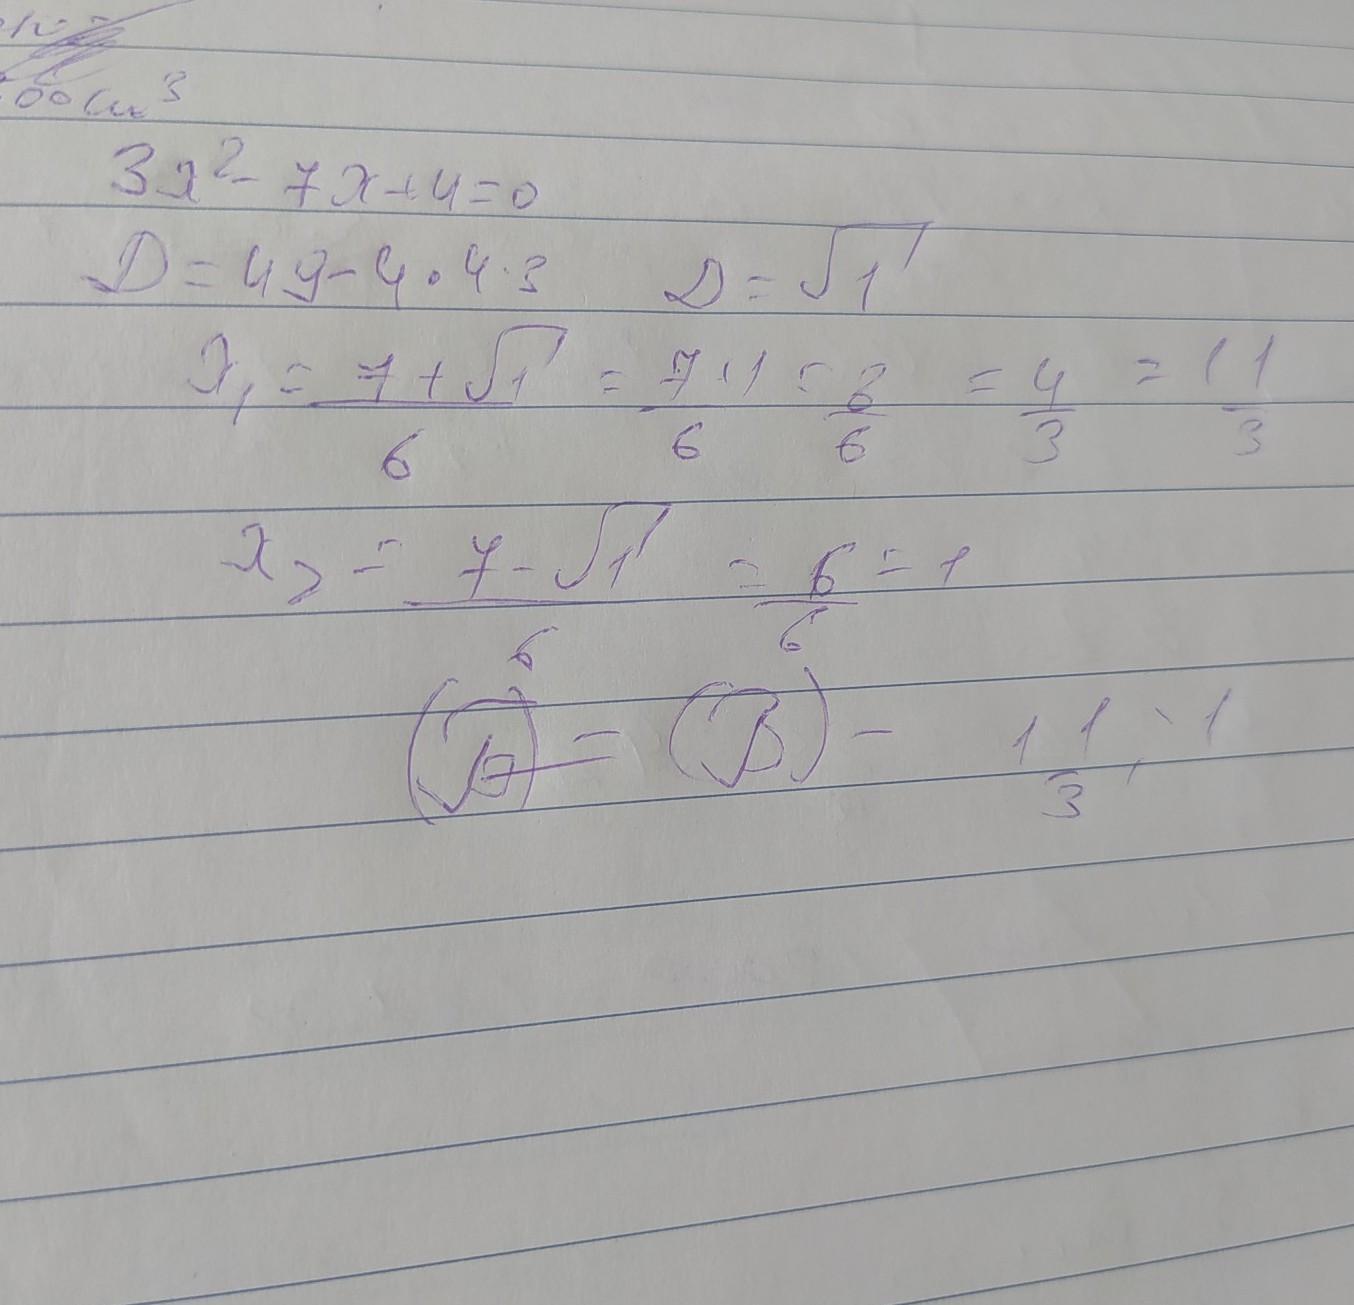 00см³
3x² - 7x + 4 = 0
D = 49 - 4 · 4 · 3 D = √1
x₁ = (7 + √1)/6 = (7 + 1)/6 = 8/6 = 4/3 = 1 1/3
x₂ = (7 - √1)/6 = 6/6 = 1
(В) - 1 1/3; 1